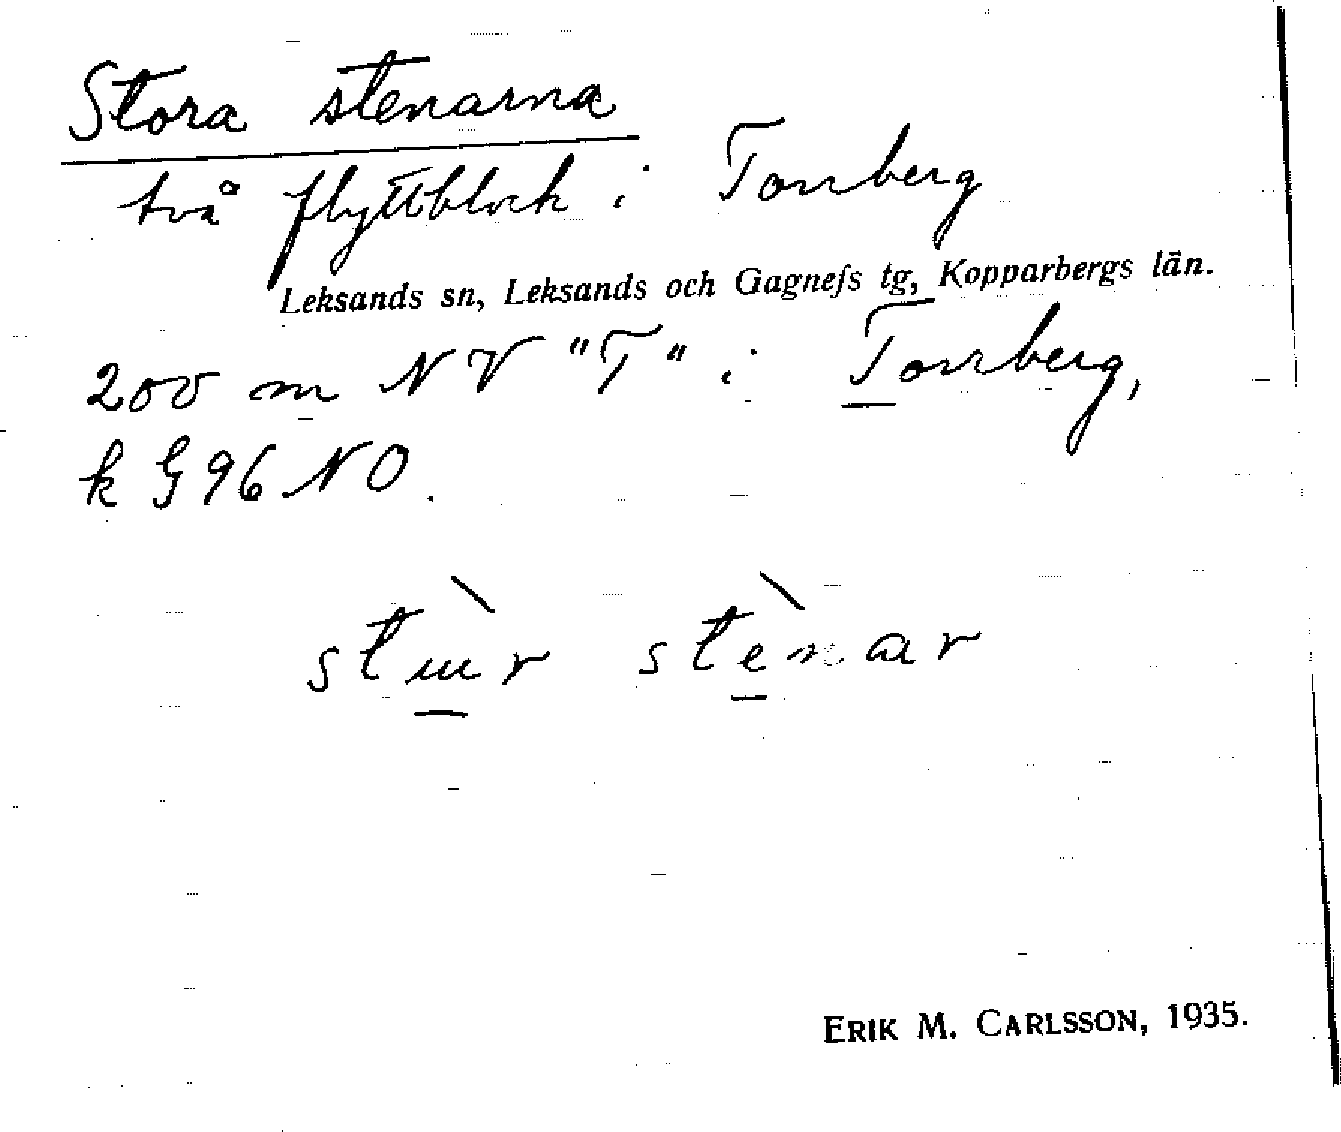 Stora stenarna
två flyttblock i Torrberg
Leksands sn, Leksands och Gagnefs tg, Kopparbergs län.
200 m NV "T" i Torrberg,
k G 96 NO.
stɯ̀r stènar
ERIK M. CARLSSON, 1935.